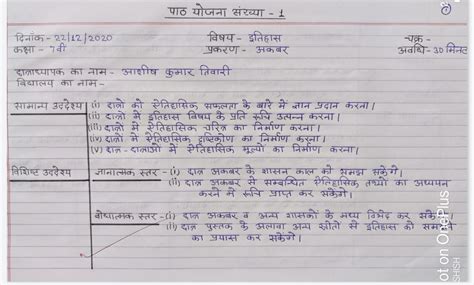 पाठ योजना संख्या - 1
①
दिनांक - 22/12/2020 विषय - इतिहास चक्र -
कक्षा - 7वी प्रकरण - अकबर अवधि - 30 मिनट
छात्राध्यापक का नाम - आशीष कुमार तिवारी
विद्यालय का नाम -
सामान्य उद्देश्य (i) छात्रो को ऐतिहासिक सफलता के बारे में ज्ञान प्रदान करना।
(ii) छात्रो में इतिहास विषय के प्रति रूचि उत्पन्न करना।
(iii) छात्रो में ऐतिहासिक चरित्र का निर्माण करना।
(iv) छात्रो में ऐतिहासिक दृष्टिकोण का निर्माण करना।
(v) छात्र - छात्राओ में ऐतिहासिक मूल्यो का निर्माण करना।
विशिष्ट उद्देश्य ज्ञानात्मक स्तर - (i) छात्र अकबर के शासन काल को समझ सकेगे।
(ii) छात्र अकबर से सम्बन्धित ऐतिहासिक तथ्यो का अध्ययन
करने में रूचि प्राप्त कर सकेगे।
बोधात्मक स्तर - (i) छात्र अकबर व अन्य शासको के मध्य विभेद कर सकेगे।
(ii) छात्र पुस्तक के अलावा अन्य स्रोतो से इतिहास को समझने
का प्रयास कर सकेगे।
ot on OnePlus
SHISH